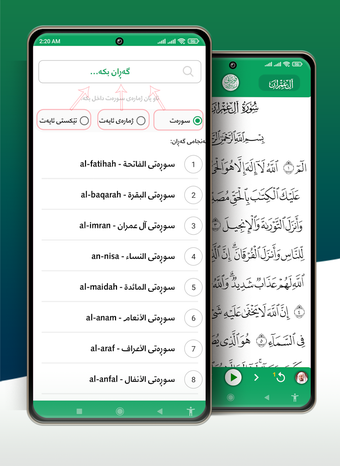 2:20 AM
گەڕان بکە...
ناو یان ژمارەی سورەت داخل بکە
سورەت
ژمارەی ئایەت
تێکستی ئایەت
ئەنجامی گەڕان:
1 سورەتی الفاتحة - al-fatihah
2 سورەتی البقرة - al-baqarah
3 سورەتی آل عمران - al-imran
4 سورەتی النساء - an-nisa
5 سورەتی المائدة - al-maidah
6 سورەتی الأنعام - al-anam
7 سورەتی الأعراف - al-araf
8 سورەتی الأنفال - al-anfal
آل عمران
سُورَةُ آلِ عِمْرَانَ
بِسْمِ ٱللَّهِ ٱلرَّحْمَٰنِ
الٓمٓ ١ ٱللَّهُ لَآ إِلَٰهَ إِلَّا هُوَ ٱلْحَىُّ
عَلَيْكَ ٱلْكِتَٰبَ بِٱلْحَقِّ
وَأَنزَلَ ٱلتَّوْرَىٰةَ وَٱلْإِنجِيلَ
لِّلنَّاسِ وَأَنزَلَ ٱلْفُرْقَانَ إِنَّ
ٱللَّهِ لَهُمْ عَذَابٌ شَدِيدٌ وَٱللَّهُ
٤ إِنَّ ٱللَّهَ لَا يَخْفَىٰ عَلَيْهِ
فِى ٱلسَّمَآءِ ٥ هُوَ ٱلَّذِى